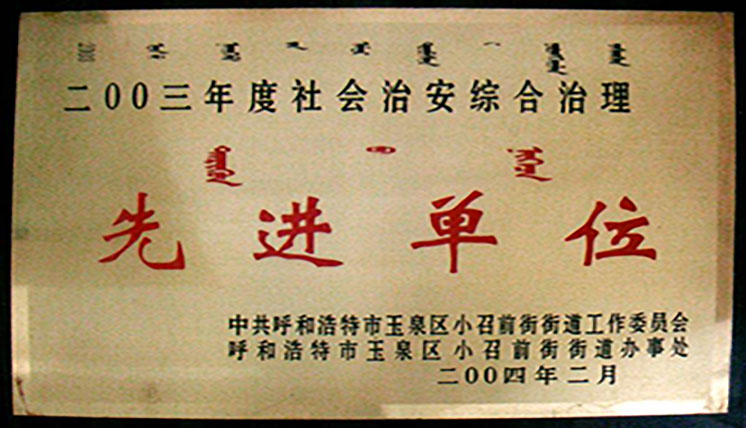 二00三年度社会治安综合治理
先进单位
中共呼和浩特市玉泉区小召前街街道工作委员会
呼和浩特市玉泉区小召前街街道办事处
二00四年二月